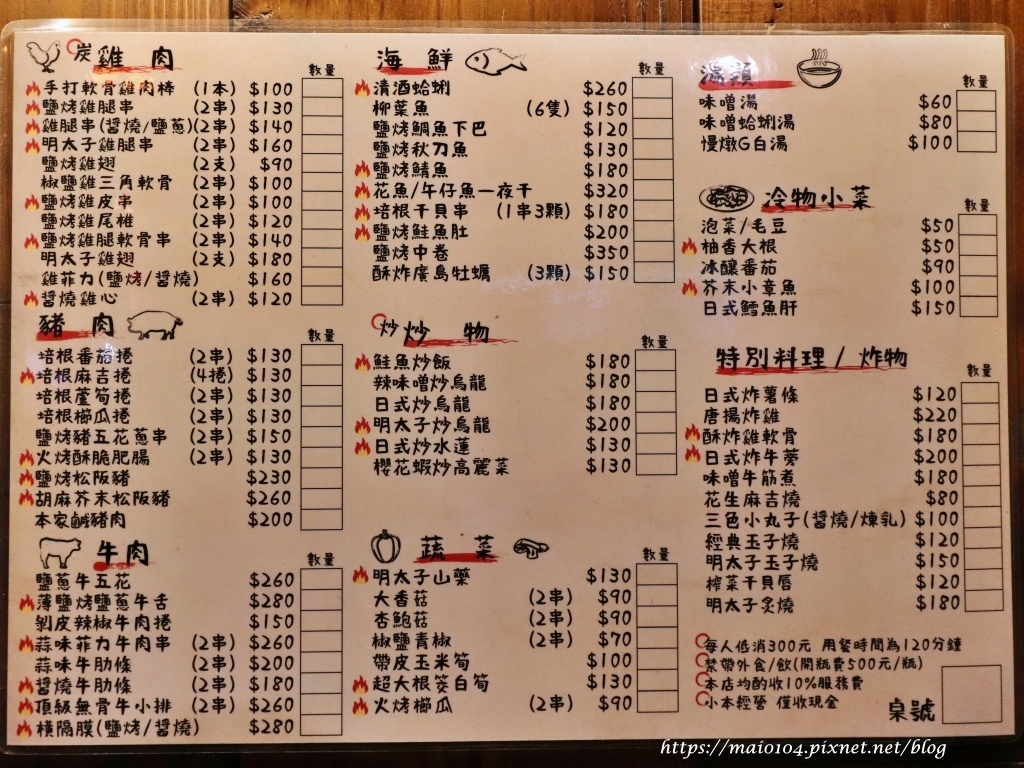 炭 雞肉
數量
手打軟骨雞肉棒 (1本) $100
鹽烤雞腿串 (2串) $130
雞腿串(醬燒/鹽蔥)(2串) $140
明太子雞腿串 (2串) $160
鹽烤雞翅 (2支) $90
椒鹽雞三角軟骨 (2串) $100
鹽烤雞皮串 (2串) $100
鹽烤雞尾椎 (2串) $120
鹽烤雞腿軟骨串 (2串) $140
明太子雞翅 (2支) $180
雞菲力(鹽烤/醬燒) $160
醬燒雞心 (2串) $120
豬肉
數量
培根番茄捲 (2串) $130
培根麻吉捲 (4捲) $130
培根蘆筍捲 (2串) $130
培根櫛瓜捲 (2串) $130
鹽烤豬五花蔥串 (2串) $150
火烤酥脆肥腸 (2串) $130
鹽烤松阪豬 $230
胡麻芥末松阪豬 $260
本家鹹豬肉 $200
牛肉
數量
鹽蔥牛五花 $260
薄鹽烤鹽蔥牛舌 $280
剝皮辣椒牛肉捲 $150
蒜味菲力牛肉串 (2串) $260
蒜味牛肋條 (2串) $200
醬燒牛肋條 (2串) $180
頂級無骨牛小排 (2串) $260
橫隔膜(鹽烤/醬燒) $280
海鮮
數量
清酒蛤蜊 $260
柳葉魚 (6隻) $150
鹽烤鯛魚下巴 $120
鹽烤秋刀魚 $130
鹽烤鯖魚 $180
花魚/午仔魚一夜干 $320
培根干貝串 (1串3顆) $180
鹽烤鮭魚肚 $200
鹽烤中卷 $350
酥炸廣島牡蠣 (3顆) $150
炒 炒物
數量
鮭魚炒飯 $180
辣味噌炒烏龍 $180
日式炒烏龍 $180
明太子炒烏龍 $200
日式炒水蓮 $130
櫻花蝦炒高麗菜 $130
蔬菜
數量
明太子山藥 $130
大香菇 (2串) $90
杏鮑菇 (2串) $90
椒鹽青椒 (2串) $70
帶皮玉米筍 $100
超大根筊白筍 $130
火烤櫛瓜 (2串) $90
湯類
數量
味噌湯 $60
味噌蛤蜊湯 $80
慢燉G白湯 $100
冷物小菜
數量
泡菜/毛豆 $50
柚香大根 $50
冰釀番茄 $90
芥末小章魚 $100
日式鱈魚肝 $150
特別料理/炸物
數量
日式炸薯條 $120
唐揚炸雞 $220
酥炸雞軟骨 $180
日式炸牛蒡 $200
味噌牛筋煮 $180
花生麻吉燒 $80
三色小丸子(醬燒/煉乳) $100
經典玉子燒 $120
明太子玉子燒 $150
榨菜干貝唇 $120
明太子炙燒 $180
每人低消300元 用餐時間為120分鐘
禁帶外食/飲(開瓶費500元/瓶)
本店均酌收10%服務費
小本經營 僅收現金
桌號
https://maio104.pixnet.net/blog